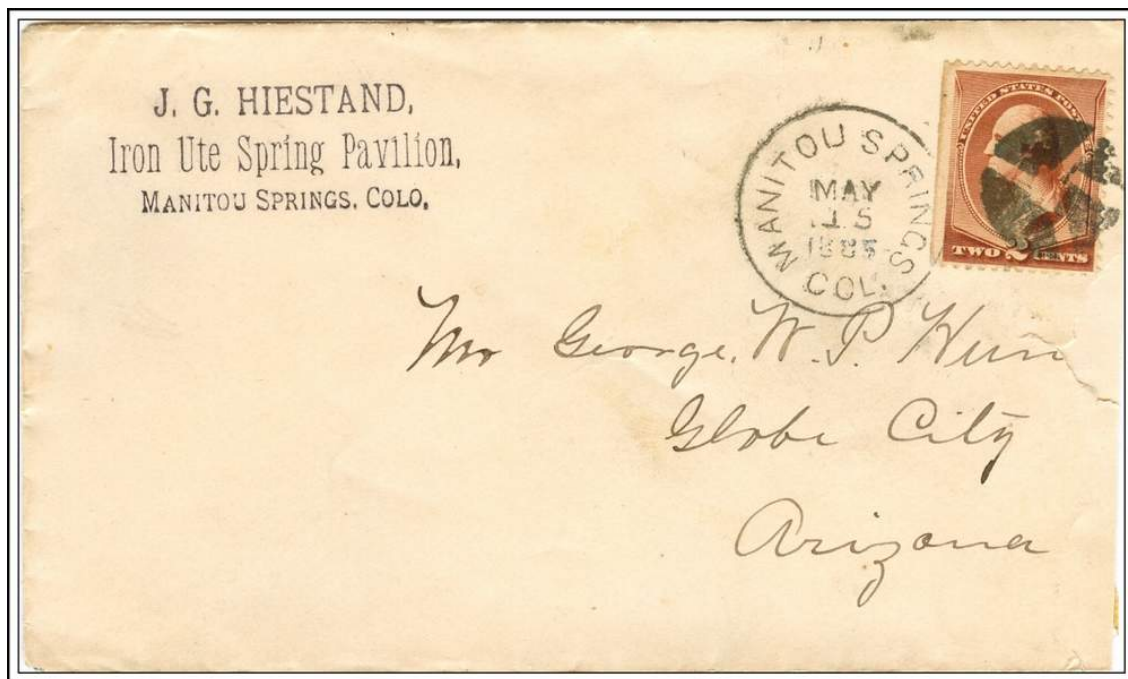 J. G. HIESTAND,
Iron Ute Spring Pavilion,
MANITOU SPRINGS, COLO,
MANITOU SPRINGS
MAY
15
1885
COL.
UNITED STATES POST
TWO 2 CENTS
Mr George. W. P. Hun
Globe City
Arizona